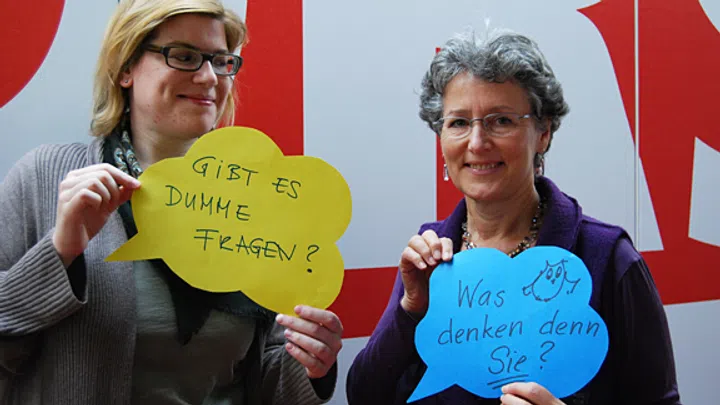 GiBT ES
DUMME
FRAGEN?
Was
denken denn
Sie?